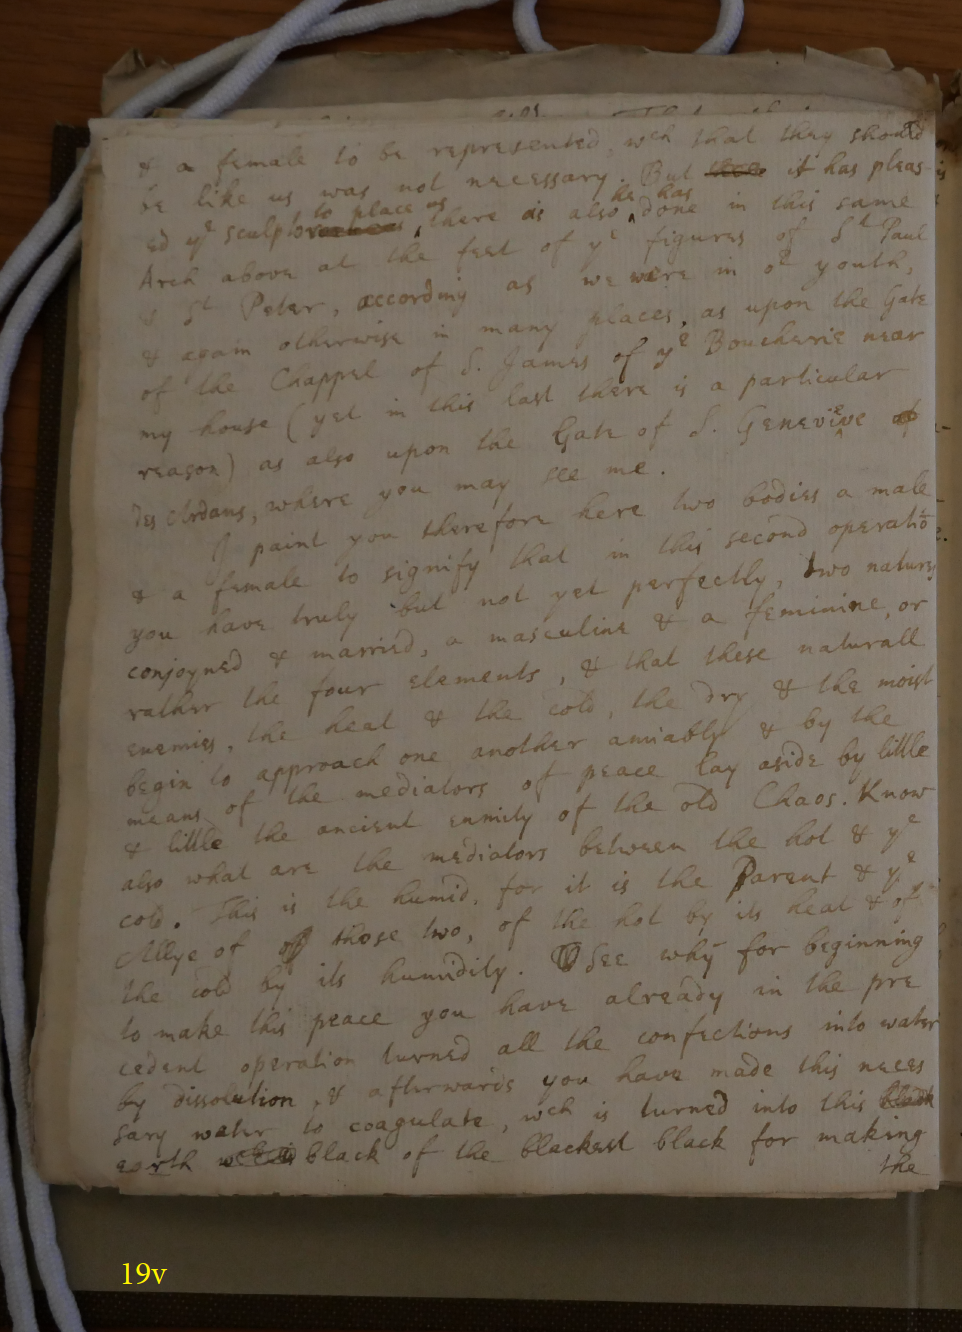 & a female to be represented, wch that they should
be like us was not necessary. But it has pleas-
ed ye sculptor to place us, there as also he has done in this same
Arch above at the feet of ye figures of St Paul
& St Peter, according as we were in or youth,
& again otherwise in many places, as upon the Gate
of the Chappel of S. James of ye Boucherie near
my house (yet in this last there is a particular
reason) as also upon the Gate of S. Genevieve
des Ardans, where you may see me.
I paint you therefore here two bodies a male
& a female to signify that in this second operatiō
you have truly but not yet perfectly, two natures
conjoyned & married, a masculine & a feminine, or
rather the four elements, & that these naturall
enemies, the heat & the cold, the dry & the moist
begin to approach one another amiably & by the
means of the mediators of peace lay aside by little
& little the ancient enmity of the old Chaos. Know
also what are the mediators between the hot & ye
cold. This is the humid, for it is the Parent & ye
Allye of those two, of the hot by its heat & of
the cold by its humidity. See why for beginning
to make this peace you have already in the pre
cedent operation turned all the confections into water
by dissolution, & afterwards you have made this neces
sary water to coagulate, wch is turned into this
earth black of the blackest black for making
the
19v